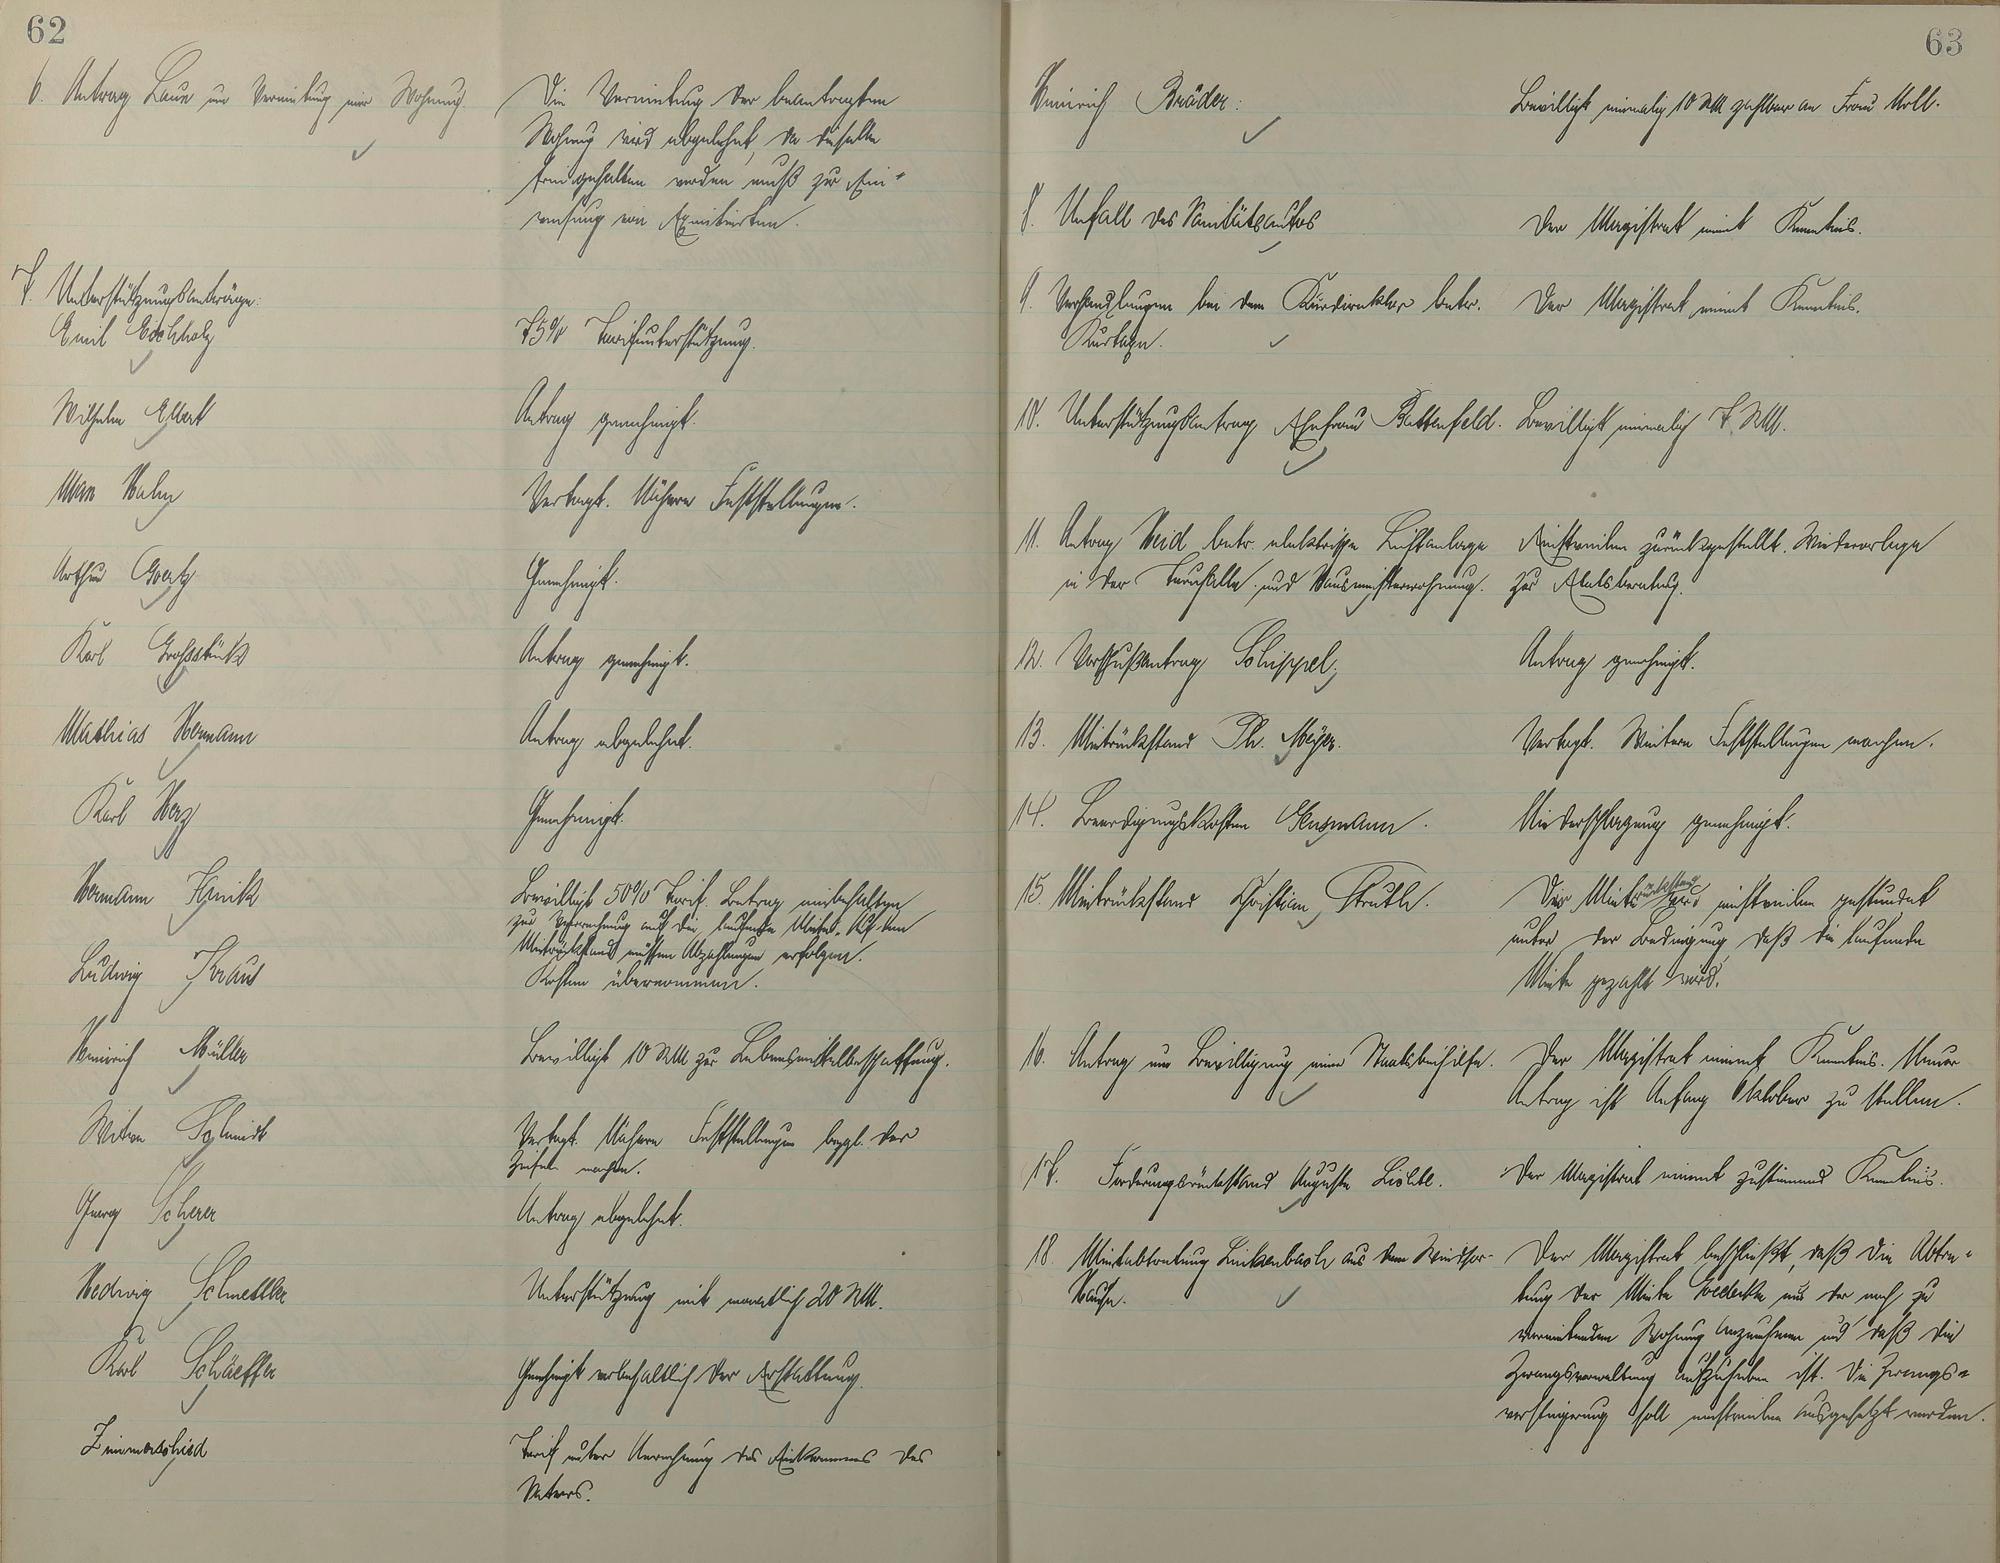 62
6. Antrag Laux um Vermietung einer Wohnung.
Die Vermietung der beantragten
Wohnung wird abgelehnt, da dieselbe
freigehalten werden muß zur Ein-
weisung von Exmittierten.
7. Unterstützungsanträge:
Emil Eschholz
75% Tarifunterstützung.
Wilhelm Ebert
Antrag genehmigt.
Max Hahn
Vertagt. Nähere Feststellungen.
Arthur Goertz
Genehmigt.
Karl Großstück
Antrag genehmigt.
Mathias Hermann
Antrag abgelehnt.
Karl Herz
Genehmigt.
Hermann
Bewilligt 50% Tarif. Betrag einbehalten
zur Verrechnung auf die laufende Miete. Auf den
Mietrückstand müssen Abzahlungen erfolgen.
Ludwig Kraus
Kosten übernommen.
Heinrich Müller
Bewilligt 10 RM zur Lebensmittelbeschaffung.
Witwe Schmidt
Vertagt. Nähere Feststellungen bezgl. der
machen.
Georg Scherer
Antrag abgelehnt.
Hedwig Schmettler
Unterstützung mit monatlich 20 RM.
Karl Schäeffer
Genehmigt vorbehaltlich der Erstattung.
Zimmerschied
Tarif unter Anrechnung des Einkommens des
Vaters.
63
Heinrich Bräder:
Bewilligt einmalig 10 RM zahlbar an Frau Moll.
8. Unfall des Sanitätsautos
Der Magistrat nimmt Kenntnis.
9. Verhandlungen bei dem Kurdirektor betr.
Kurtaxe.
Der Magistrat nimmt Kenntnis.
10. Unterstützungsantrag Ehefrau Battenfeld.
Bewilligt einmalig 7 RM.
11. Antrag Heid betr. elektrische Lichtanlage
in der Turnhalle und Hausmeisterwohnung.
Einstweilen zurückgestellt. Wiedervorlage
zur Etatsberatung.
12. Vorschußantrag Schippel;
Antrag genehmigt.
13. Mietrückstand Ph. Meyer.
Vertagt. Weitere Feststellungen machen.
14. Beerdigungskosten Gensmann.
Niederschlagung genehmigt.
15. Mietrückstand Christian Struth.
Der Mietrückstand wird einstweilen gestundet
unter der Bedingung, daß die laufende
Miete gezahlt wird.
16. Antrag um Bewilligung einer Staatsbeihilfe.
Der Magistrat nimmt Kenntnis. Neuer
Antrag ist Anfang Oktober zu stellen.
17. Forderungsrückstand Auguste Lischke.
Der Magistrat nimmt zustimmend Kenntnis.
18. Mietabtretung Linkenbach aus dem Windsor-
Hause.
Der Magistrat beschließt, daß die Abtre-
tung der Miete Goedecke aus der noch zu
vermietenden Wohnung anzunehmen und daß die
Zwangsverwaltung aufzuheben ist. Die Zwangs-
versteigerung soll einstweilen ausgesetzt werden.